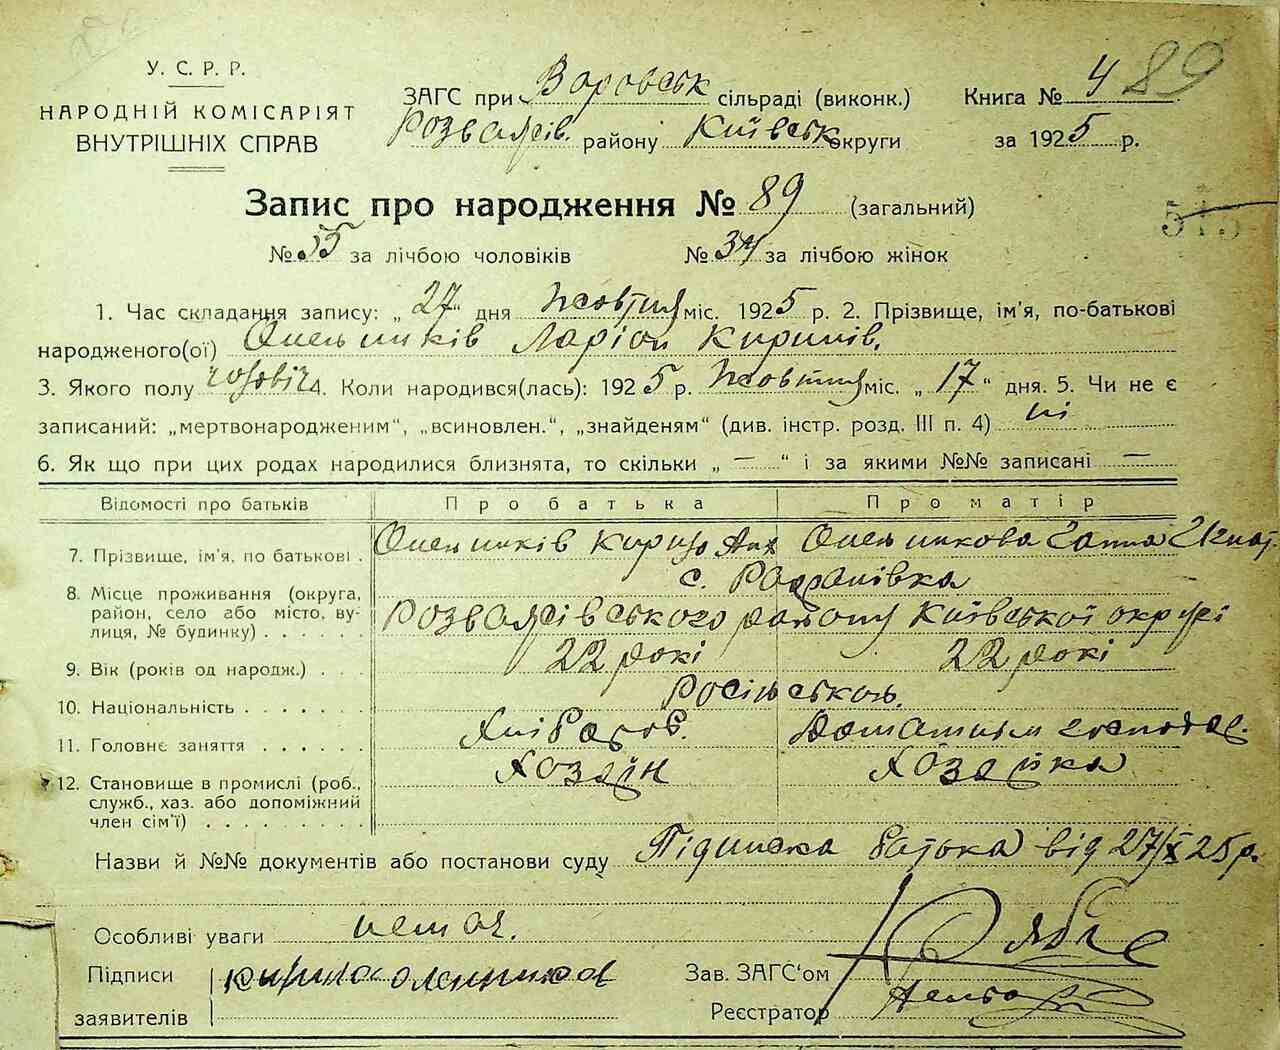 У. С. Р. Р.
НАРОДНІЙ КОМІСАРІЯТ
ВНУТРІШНІХ СПРАВ
ЗАГС при Варовськ сільраді (виконк.)
Розважів. району Київськ округи
Книга № 4 89
за 1925 р.
Запис про народження № 89 (загальний)
№ 55 за лічбою чоловіків № 34 за лічбою жінок
1. Час складання запису: „27“ дня жовтня міс. 1925 р. 2. Прізвище, ім'я, по-батькові
народженого(ої) Омельників Ларіон Кирилів.
3. Якого полу чоловіч 4. Коли народився(лась): 1925 р. жовтня міс. „17“ дня. 5. Чи не є
записаний: „мертвонародженим“, „всиновлен.“, „знайденям“ (див. інстр. розд. III п. 4) ні
6. Як що при цих родах народилися близнята, то скільки „—“ і за якими №№ записані —
Відомості про батьків Про батька Про матір
7. Прізвище, ім'я, по батькові . Омельників Кирило Омельникова Ганна Ігнат.
8. Місце проживання (округа, район, село або місто, вулиця, № будинку) . . . . . . с.
Розважівського району Київської округі
9. Вік (років од народж.) . . . 22 рокі 22 рокі
10. Національність . . . . . . .
11. Головне заняття . . . . . . Хлібороб. Домашнім господар.
12. Становище в промислі (роб., служб., хаз. або допоміжний член сім'ї) . . . . . . . . . Хозяїн Хозяйка
Назви й №№ документів або постанови суду Підписка батька від 27/X 25 р.
Особливі уваги немає.
Підписи заявителів кирило
Зав. ЗАГС'ом
Реєстратор